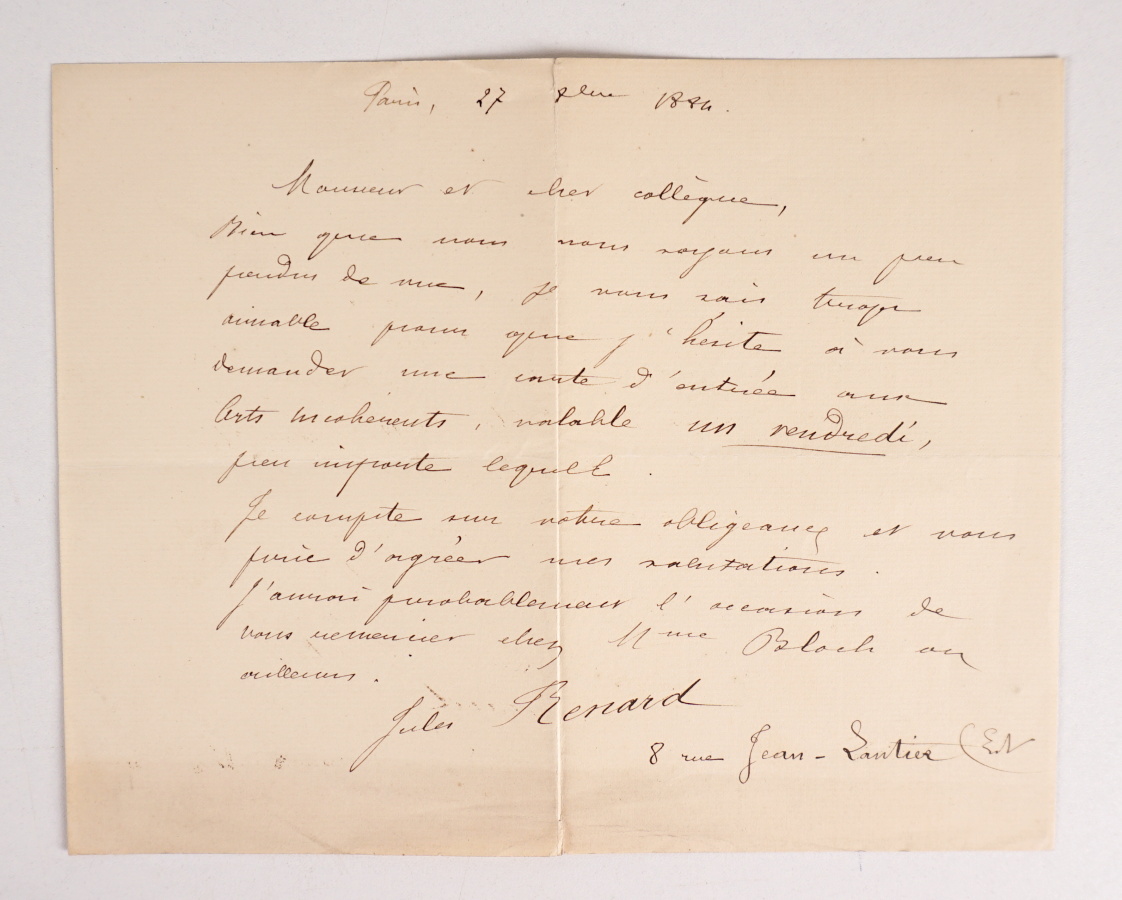 Paris, 27 8bre 1884.
Monsieur et cher collègue,
Bien que nous nous soyons un peu
perdus de vue, je vous sais trop
aimable pour que j'hésite à vous
demander une carte d'entrée aux
Arts incohérents, valable un vendredi,
peu importe lequel.
Je compte sur votre obligeance et vous
prie d'agréer mes salutations.
J'aurai probablement l'occasion de
vous remercier chez Mme Bloch ou
ailleurs.
Jules Renard
8 rue Jean-Lantier (E.V